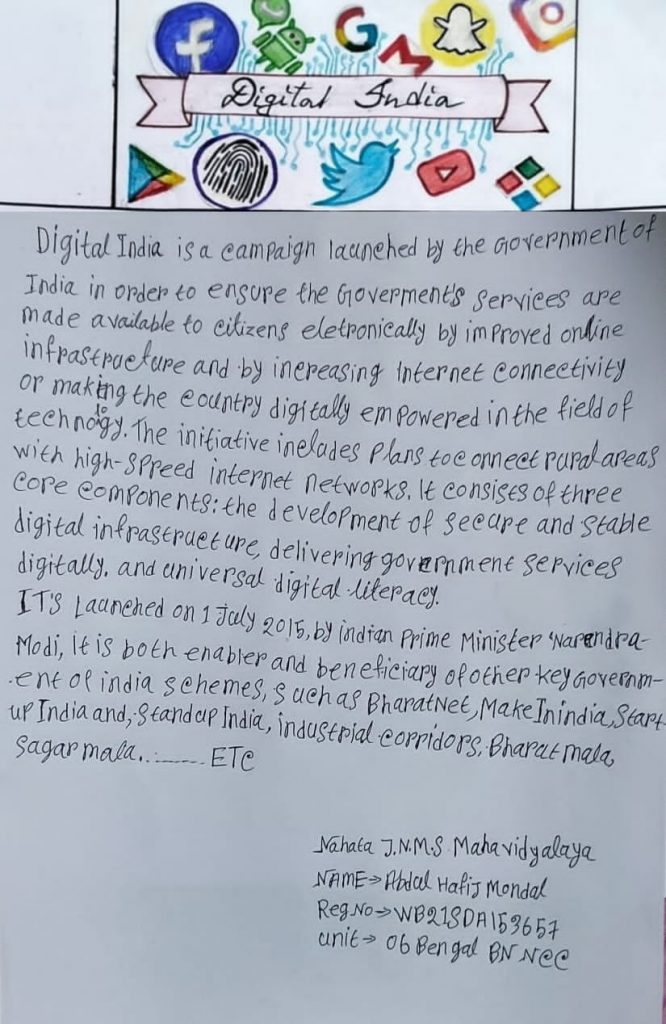 Digital India
Digital India is a campaign launched by the Government of
India in order to ensure the Goverment's services are
made available to citizens eletronically by improved online
infrastructure and by increasing Internet connectivity
or making the country digitally empowered in the field of
technology. The initiative includes plans to connect rural areas
with high-spreed internet networks. It consists of three
core components: the development of secure and stable
digital infrastructure, delivering government services
digitally, and universal digital literacy.
IT'S Launched on 1 July 2015, by indian Prime Minister Narendra
Modi, it is both enabler and beneficiary of other key Governm-
-ent of india schemes, such as BharatNet, Make In india, Start-
up India and, Standup India, industrial corridors, Bharat mala,
Sagar mala..______ ETC
Nahata J.N.M.S Mahavidyalaya
NAME→ Abdul Hafij Mondal
Reg.No→ WB21SDA153657
unit→ 06 Bengal BN NCC